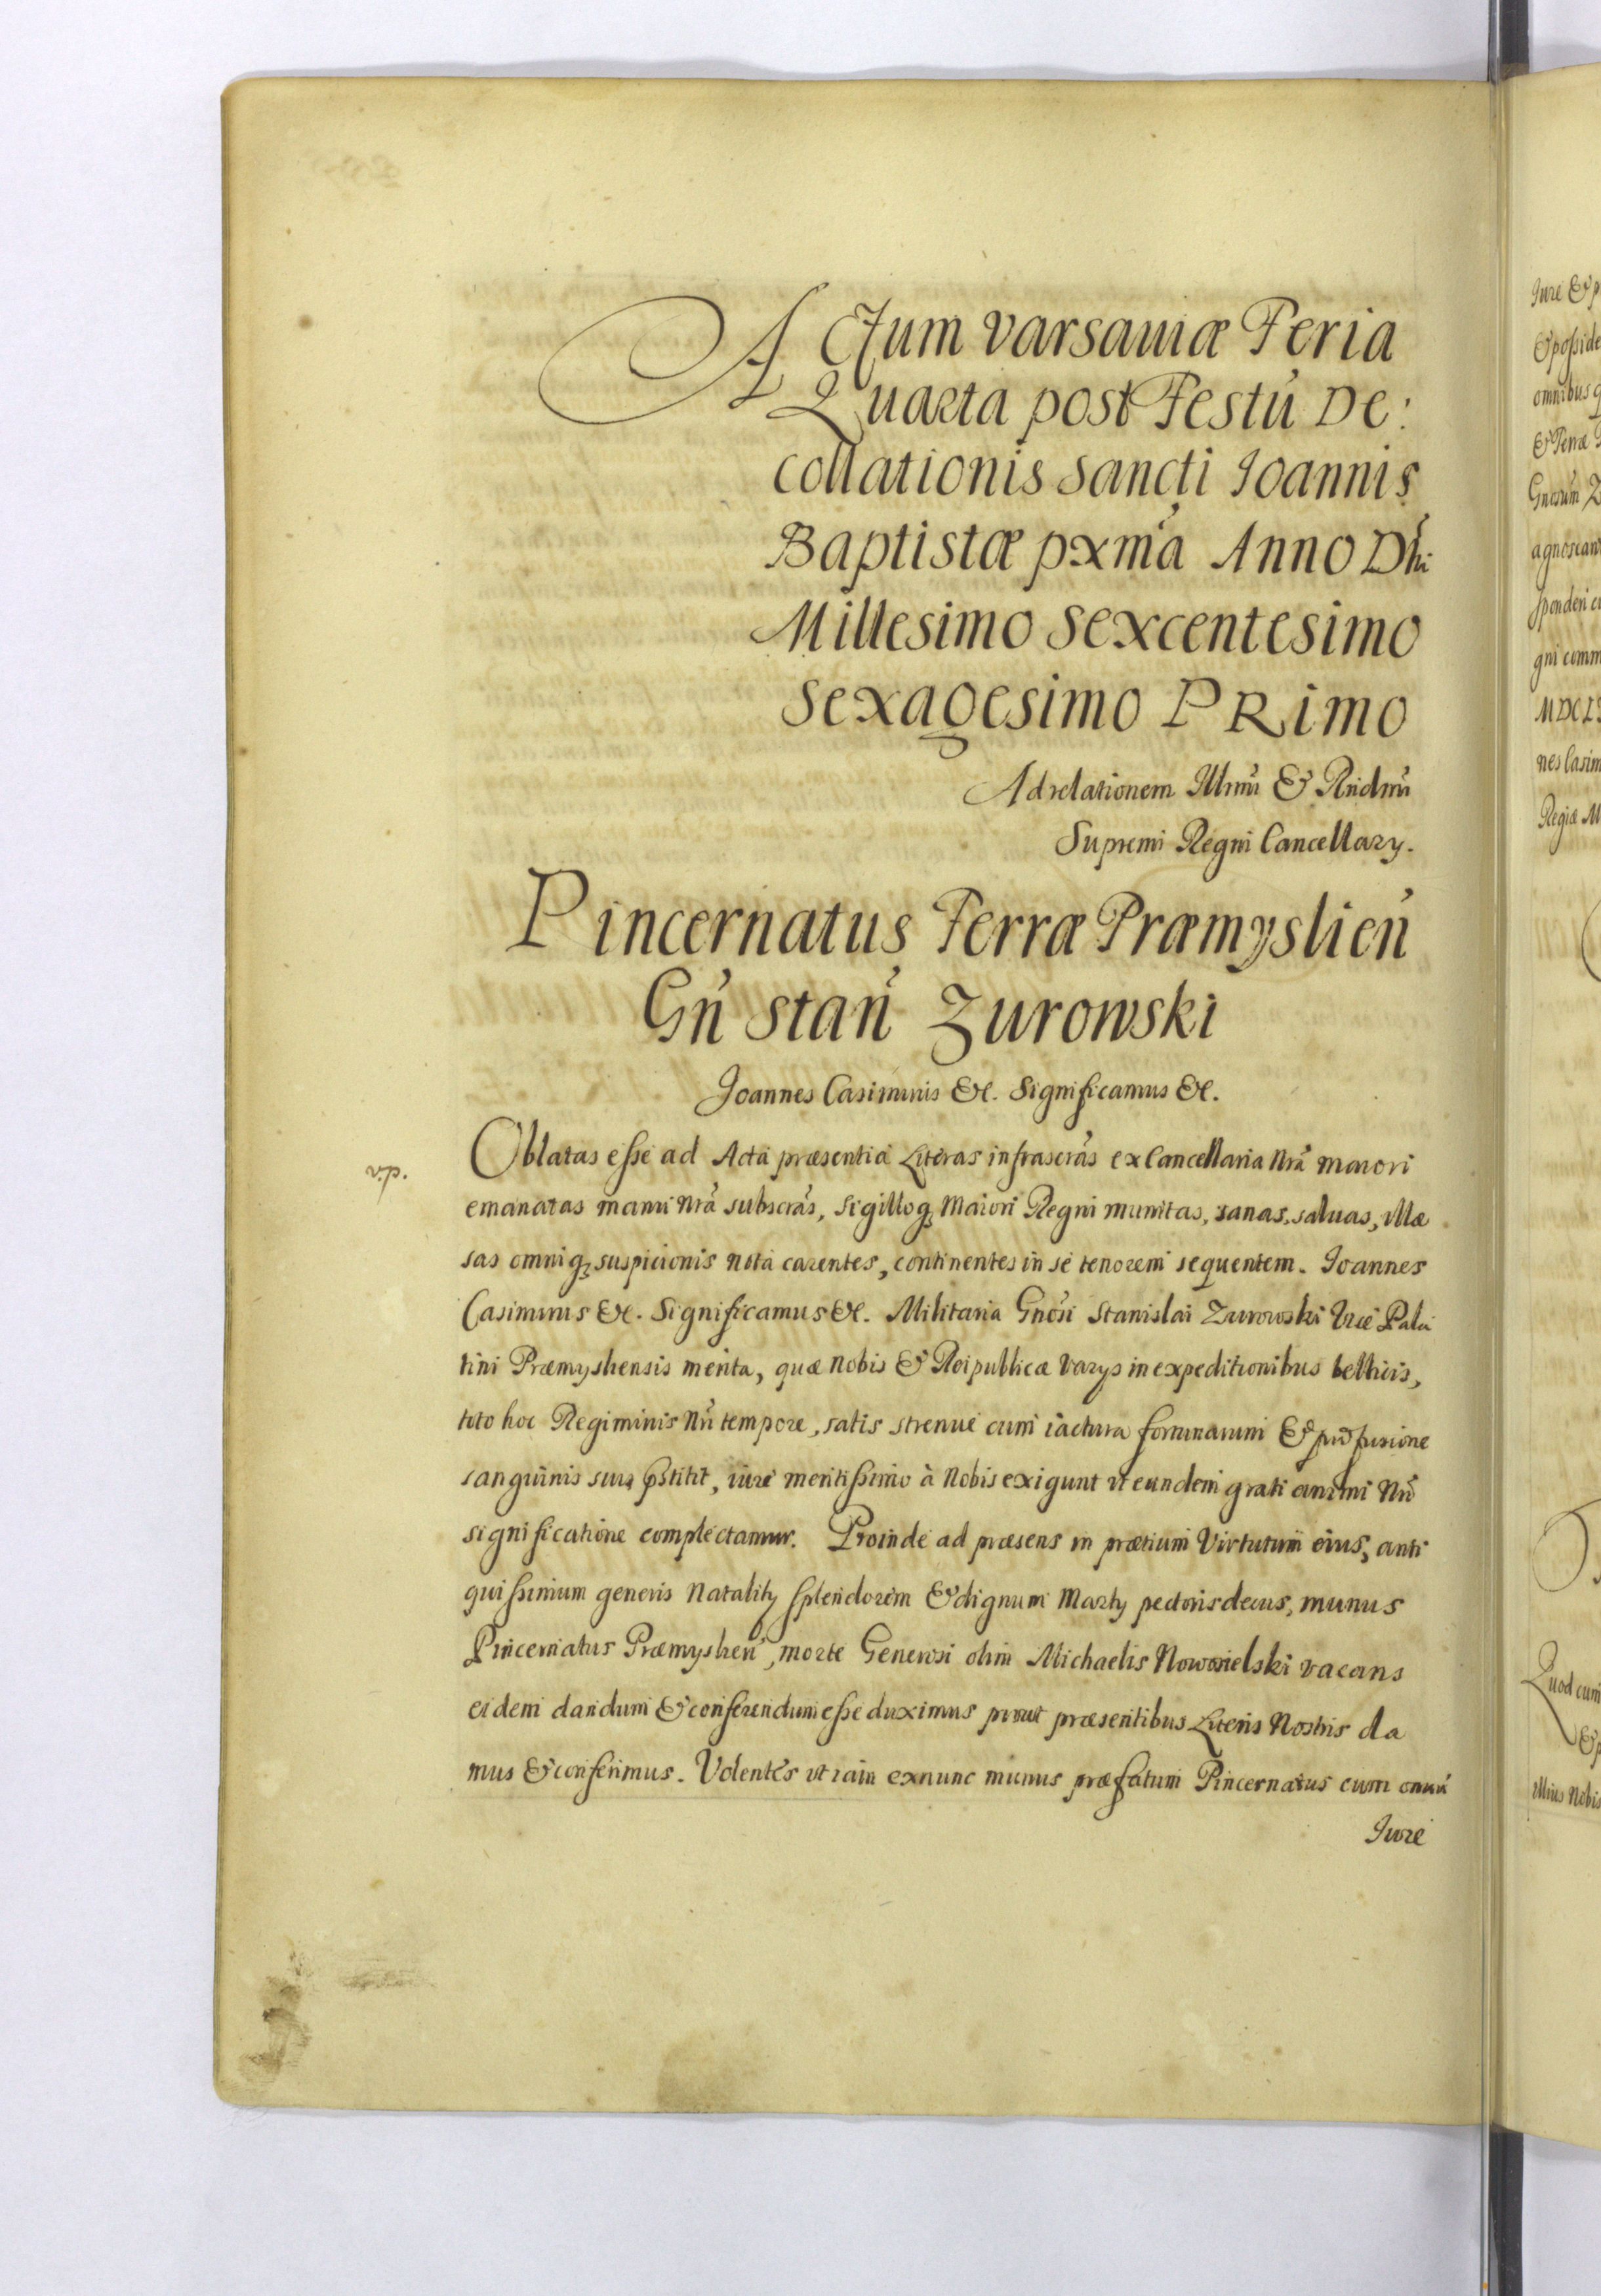 Actum Varsaviæ Feria
Quarta post Festũ De:
collationis Sancti Ioannis
Baptistæ pxmã Anno Dñi
Millesimo Sexcentesimo
Sexagesimo PRimo
Ad relationem Illrmi & Rndmi
Supremi Regni Cancellary.
Pincernatus Terræ Præmyslieñ
Gñ Stañ Zurowski
Joannes Casimirus &c. Significamus &c.
Oblatas esse ad Acta præsentia Literas infrascrãs ex Cancellaria Nrã maiori
emanatas manu Nrã subscrãs, Sigilloq; Maiori Regni munitas, sanas, saluas, illæ
sas omniq; suspicionis nota carentes, continentes in se tenorem sequentem. Joannes
Casimirus &c. Significamus &c. Militaria Gnosi Stanislai Zurowski Vice Pala
tini Præmysliensis merita, quæ nobis & Reipublicæ varys in expeditionibus bellicis,
toto hoc Regiminis Nri tempore, satis strenue cum iactura fortunarum & profusione
sanguinis sui pstitit, iure meritissimo à Nobis exigunt vt eundem grati animi Nri
significatione complectamur. Proinde ad præsens in prætium Virtutum eius, anti
quissimum generis Natality splendorem & dignum Marty pectoris decus, munus
Pincernatus Præmyslieñ, morte Generosi olim Michaelis Nowosielski vacans
eidem dandum & conferendum esse duximus prout præsentibus Literis Nostris da
mus & conferimus. Volentes vt iam exnunc munus præfatum Pincernatus cum omni
Jure
Jure & p
& posside
omnibus q
& Terræ
agnoscan
sponderi
gni comm
nes Casim
Regiæ M
Quod cum
illius Nobis